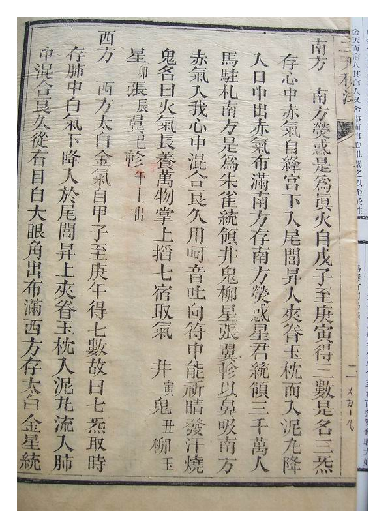 南方　南方熒惑是爲眞火自戊子至庚寅得三數是名三炁
存心中赤氣自絳宮下入尾閭昇入夾脊玉枕而入泥丸降
入口中出赤氣布滿南方存南方熒惑星君統領三千萬人
馬駐札南方是爲朱雀統領井鬼柳星張翼軫以鼻吸南方
赤氣入我心中混合良久用呵音吐向符中能祈晴發汗燒
鬼名曰火氣長養萬物掌上掐七宿取氣　井寅鬼丑柳
星卯張辰翼巳軫午
西方　西方太白金氣自甲子至庚午得七數故曰七炁取時
存肺中白氣下降入於尾閭昇上夾脊玉枕入泥丸流入肺
中混合良久從右目白大眼角出布滿西方存太白金星統